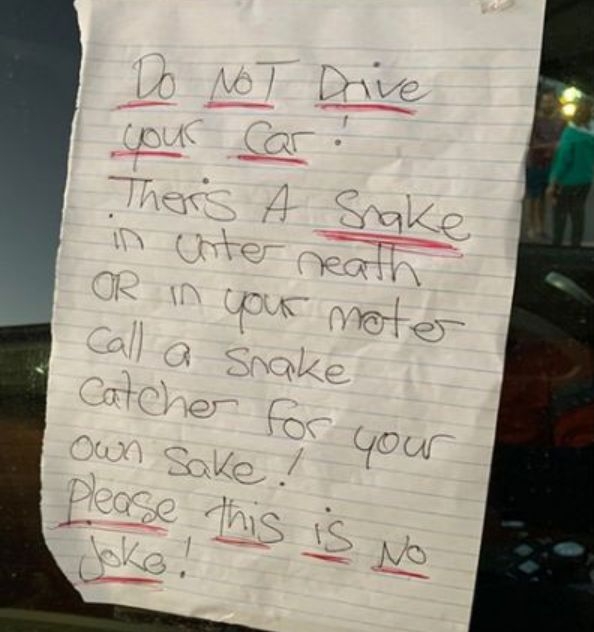 Do NOT Drive
your Car!
Ther's A Snake
in unter neath
OR in your moter
Call a snake
Catcher for your
own sake!
Please this is No
Joke!